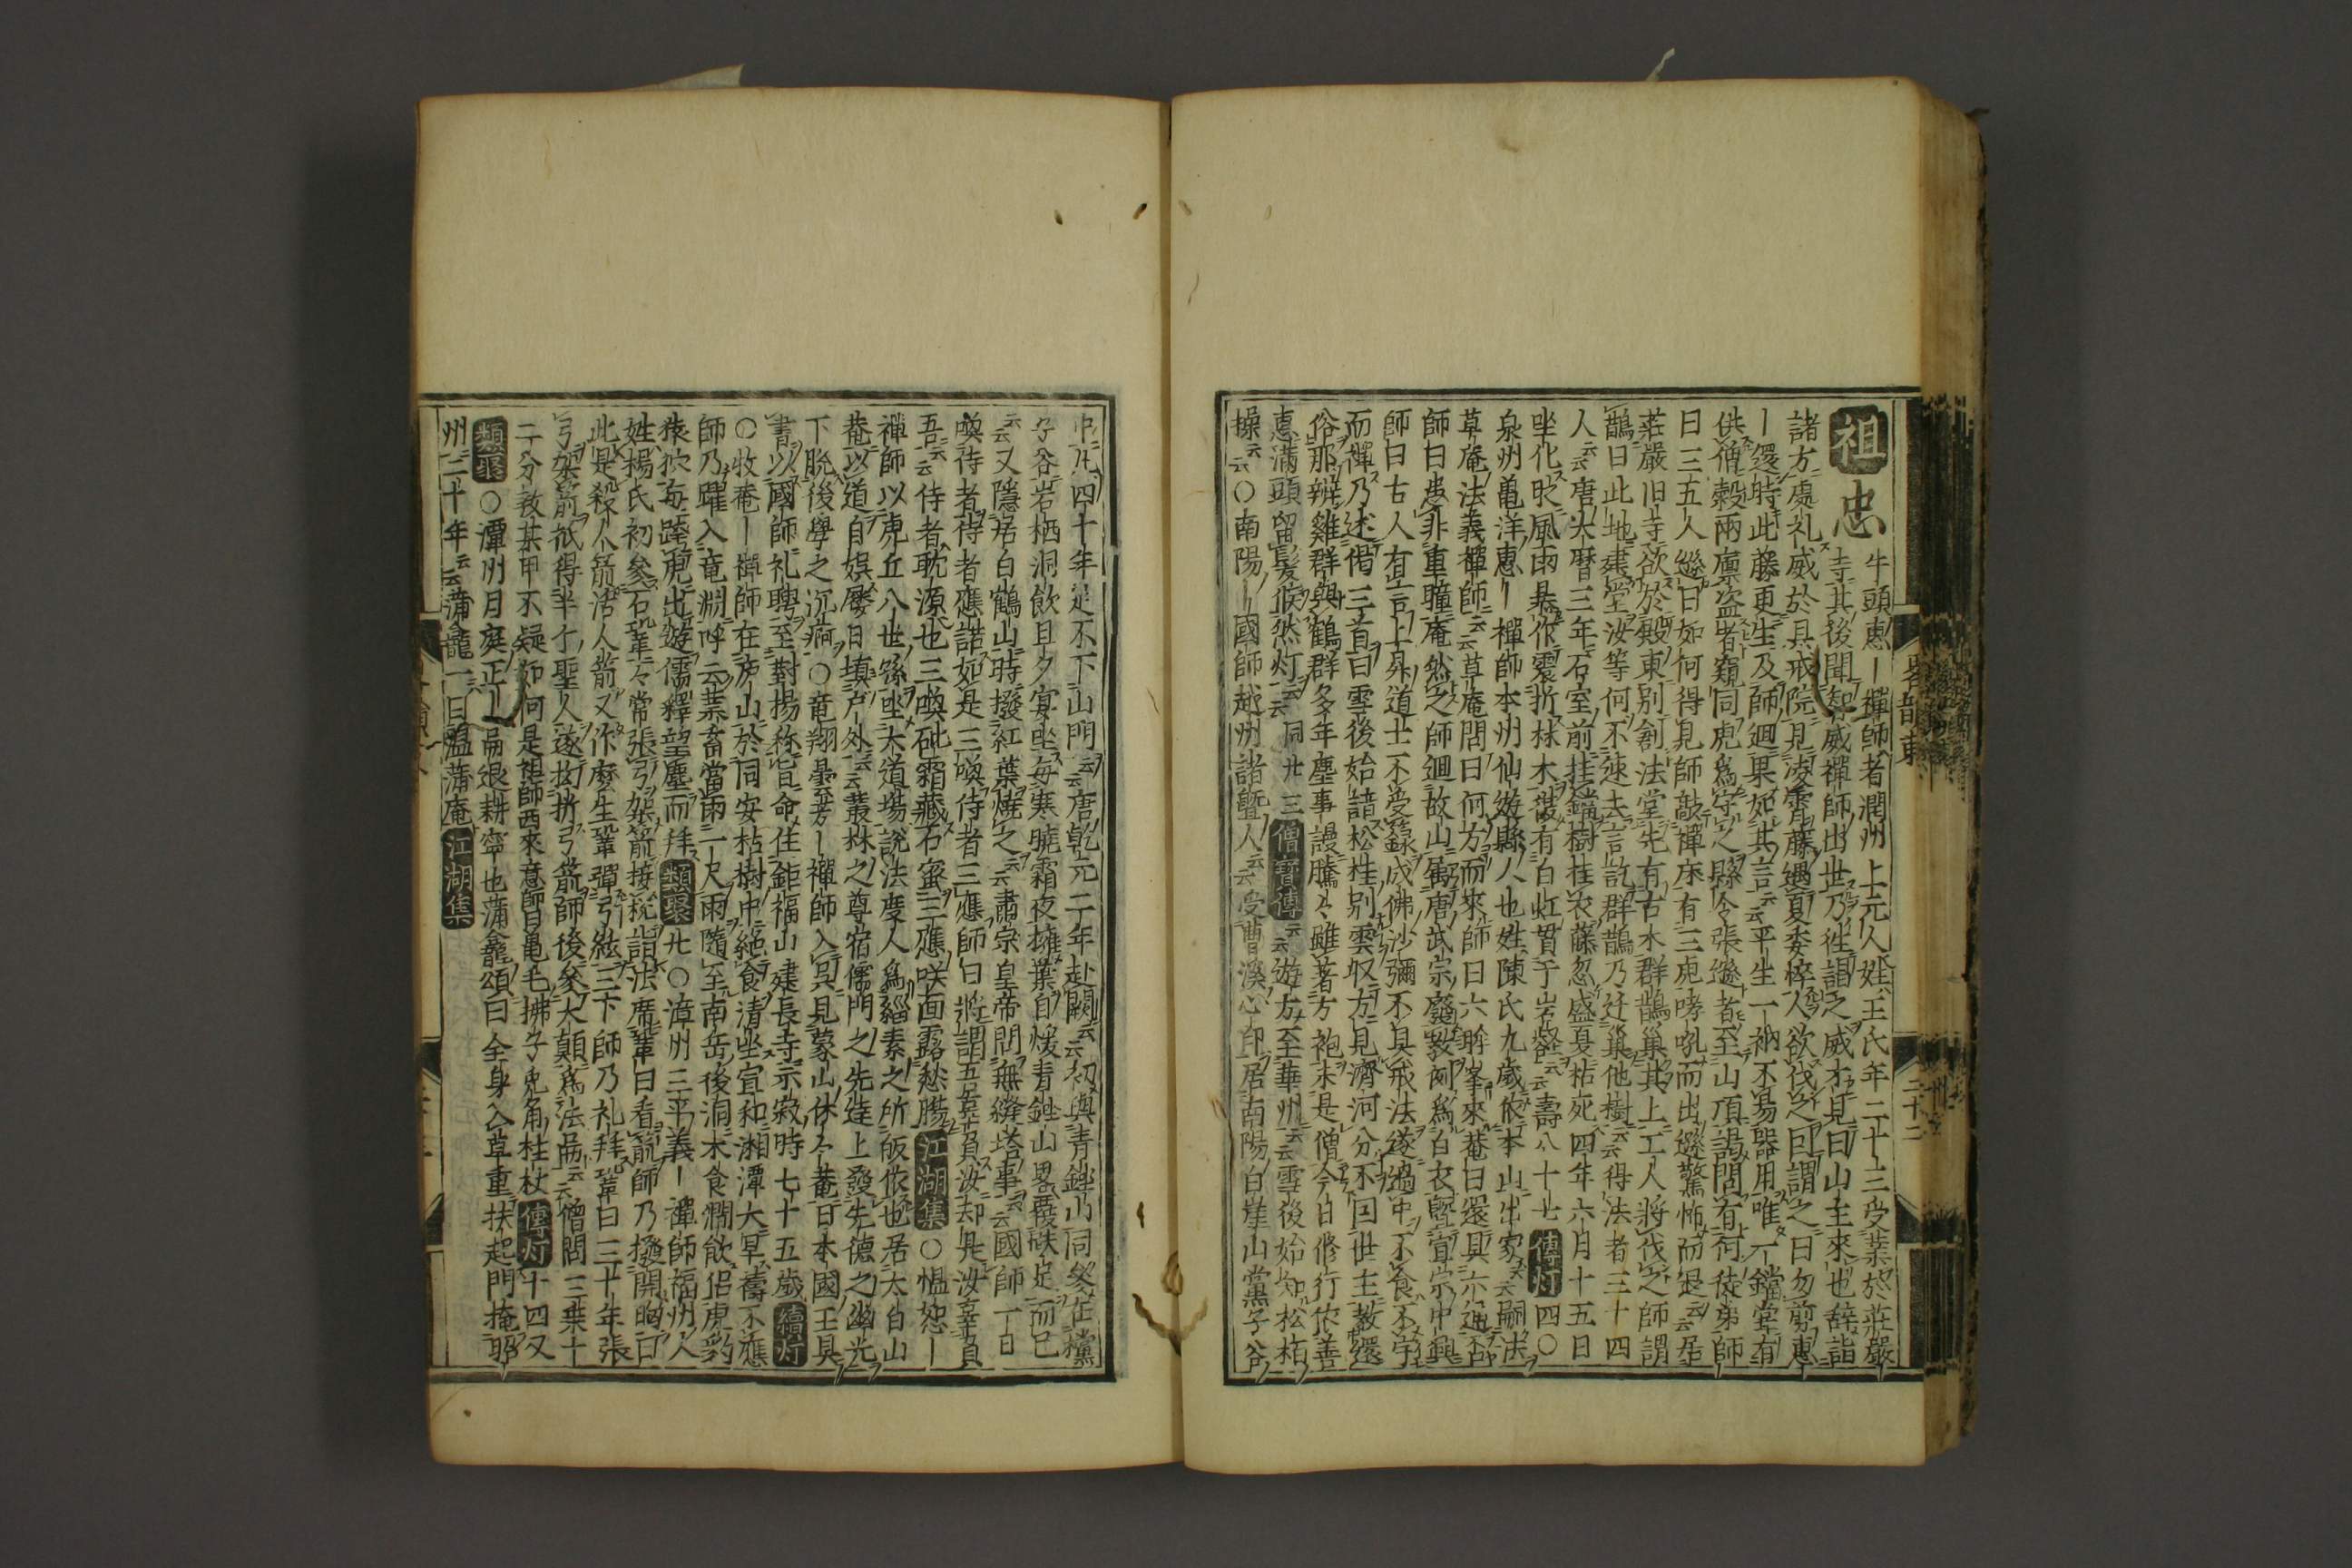 祖忠 牛頭惠丨禪師者潤州上元人姓王氏年二十三受業於莊嚴
寺其後聞智威禪師出世乃徃謁之威才見曰山主來也辞詣
諸方處礼威於具戒院見凌霄藤遇夏委悴人欲伐之囙謂之曰勿剪惠
丨還時此藤更生及師廻果如其言云云平生一衲不昜器用唯一鐺甞有
供僧穀兩廪盗者窺伺虎爲守之縣令張遜者至山頂謁問有何徒弟師
曰三五人遜曰如何得見師敲禪床有三虎哮吼而出遜驚怖而退云居
莊嚴旧寺欲於殿東别創法堂先有古木群鵲巢其上工人將伐之師謂
鵲曰此地建堂汝等何不速去言訖群鵲乃迁巢他樹云云得法者三十四
人云云唐大曆三年石室前挂鐺樹挂衣藤忽盛夏枯死四年六月十五日
坐化昃風雨暴作震折林木彼有白虹貫于岩壑云云壽八十七 傳灯 四〇
泉州亀洋惠丨禪師本州仙遊縣人也姓陳氏九歳依本山出家云嗣法
草庵法義禪師云云草庵問曰何方而來師曰六眸峯來菴曰還具六通否
師曰患非重瞳庵然之師廻故山属唐武宗廢教例爲白衣曁宣宗中興
師曰古人有言上昇道士不受籙成佛沙彌不具戒法遂過中不食不宇
而禪乃述偈三首曰雪後始諳松桂别雲収方見濟河分不囙世主教還
俗那辨雞群與鶴群多年塵事謾騰々雖著方袍未是僧今日修行依善
惠滿頭留髪候然灯云云 同廿三 僧寶傳 云云遊方至華州云云雪後始知松栢
操云云〇南陽丨國師越州諸曁人云云受曹溪心印居南陽白崖山黨子谷
中凡四十年足不下山門云云唐乾元二年赴闕云云初與青銼山同築在黨
子谷岩栖洞飲且夕宴坐毎寒曉霜夜擁葉自煖青銼山畧覆硤足而已
云云又隱居白鶴山時撥紅葉燒之云云肅宗皇帝問無縫塔事云云國師一日
喚侍者侍者應諾如是三喚侍者三應師曰將謂五辜負汝却是汝辜負
吾云云侍者耽源也三喚砒霜藏石蜜三應咲面露愁膓 江湖集 〇愠恕丨
禪師以虎丘八世孫坐大道場說法度人爲緇素之所皈依也居太白山
菴以道自娯屡日填户外云云叢林之尊宿儒門之先達上發先德之幽光
下脫後學之沉痾〇竜翔曇芳丨禪師入呉見蒙山休々菴日本國王具
書以國師礼聘至對揚称旨命住鉅福山建長寺示寂時七十五歳 續灯
〇牧菴丨禪師在庐山於同安枯樹中絶食清坐宣和湘潭大旱禱不應
師乃躍入竜淵呼云業畜當雨一尺雨隨至南岳後洞木食澗飲侶虎豹
猿狖毎䠞虎出遊儒釋望塵而拜 類聚 卄〇漳州三平義丨禪師福州人
姓楊氏初參石鞏々常張弓架箭接机詣法席鞏曰看箭師乃撥開胸曰
此是殺人箭活人箭又作麼生鞏彈弓絃三下師乃礼拜鞏曰三十年張
弓架箭秖得半个聖人遂拗折弓箭師後參大顛爲法嗣云云僧問三乗十
二分教某甲不疑如何是祖師西來意師曰亀毛拂子兎角柱杖 傳灯 十四又
類聚 〇潭州月庭正丨嗣退耕寧也蒲龕頌曰全身入草重扶起門掩昭
州二十年云云蒲龕一曰盟蒲庵 江湖集